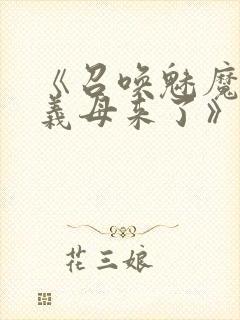 《召唤魅魔
義母来了》
花三娘